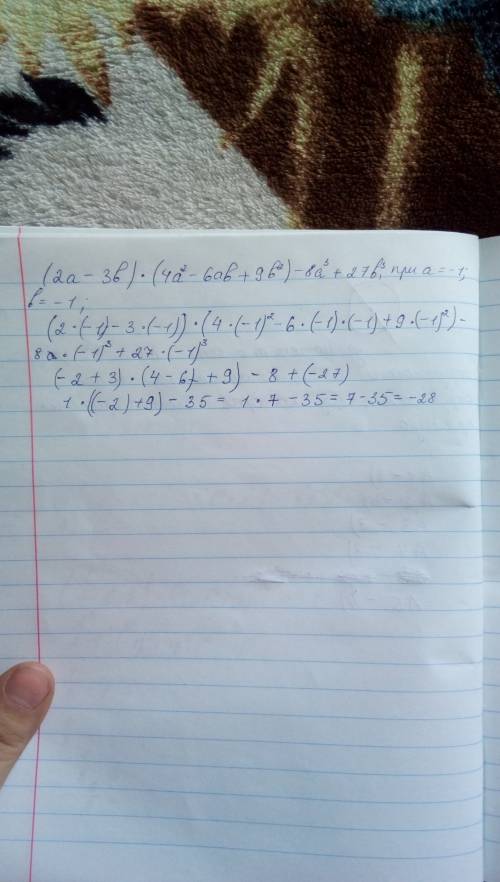 (2a - 3b) · (4a² - 6ab + 9b²) - 8a³ + 27b³, при a = -1;
b = -1;
(2 · (-1) - 3 · (-1)) · (4 · (-1)² - 6 · (-1) · (-1) + 9 · (-1)²) -
8 · (-1)³ + 27 · (-1)³
(-2 + 3) · (4 - 6 + 9) - 8 + (-27)
1 · ((-2) + 9) - 35 = 1 · 7 - 35 = 7 - 35 = -28